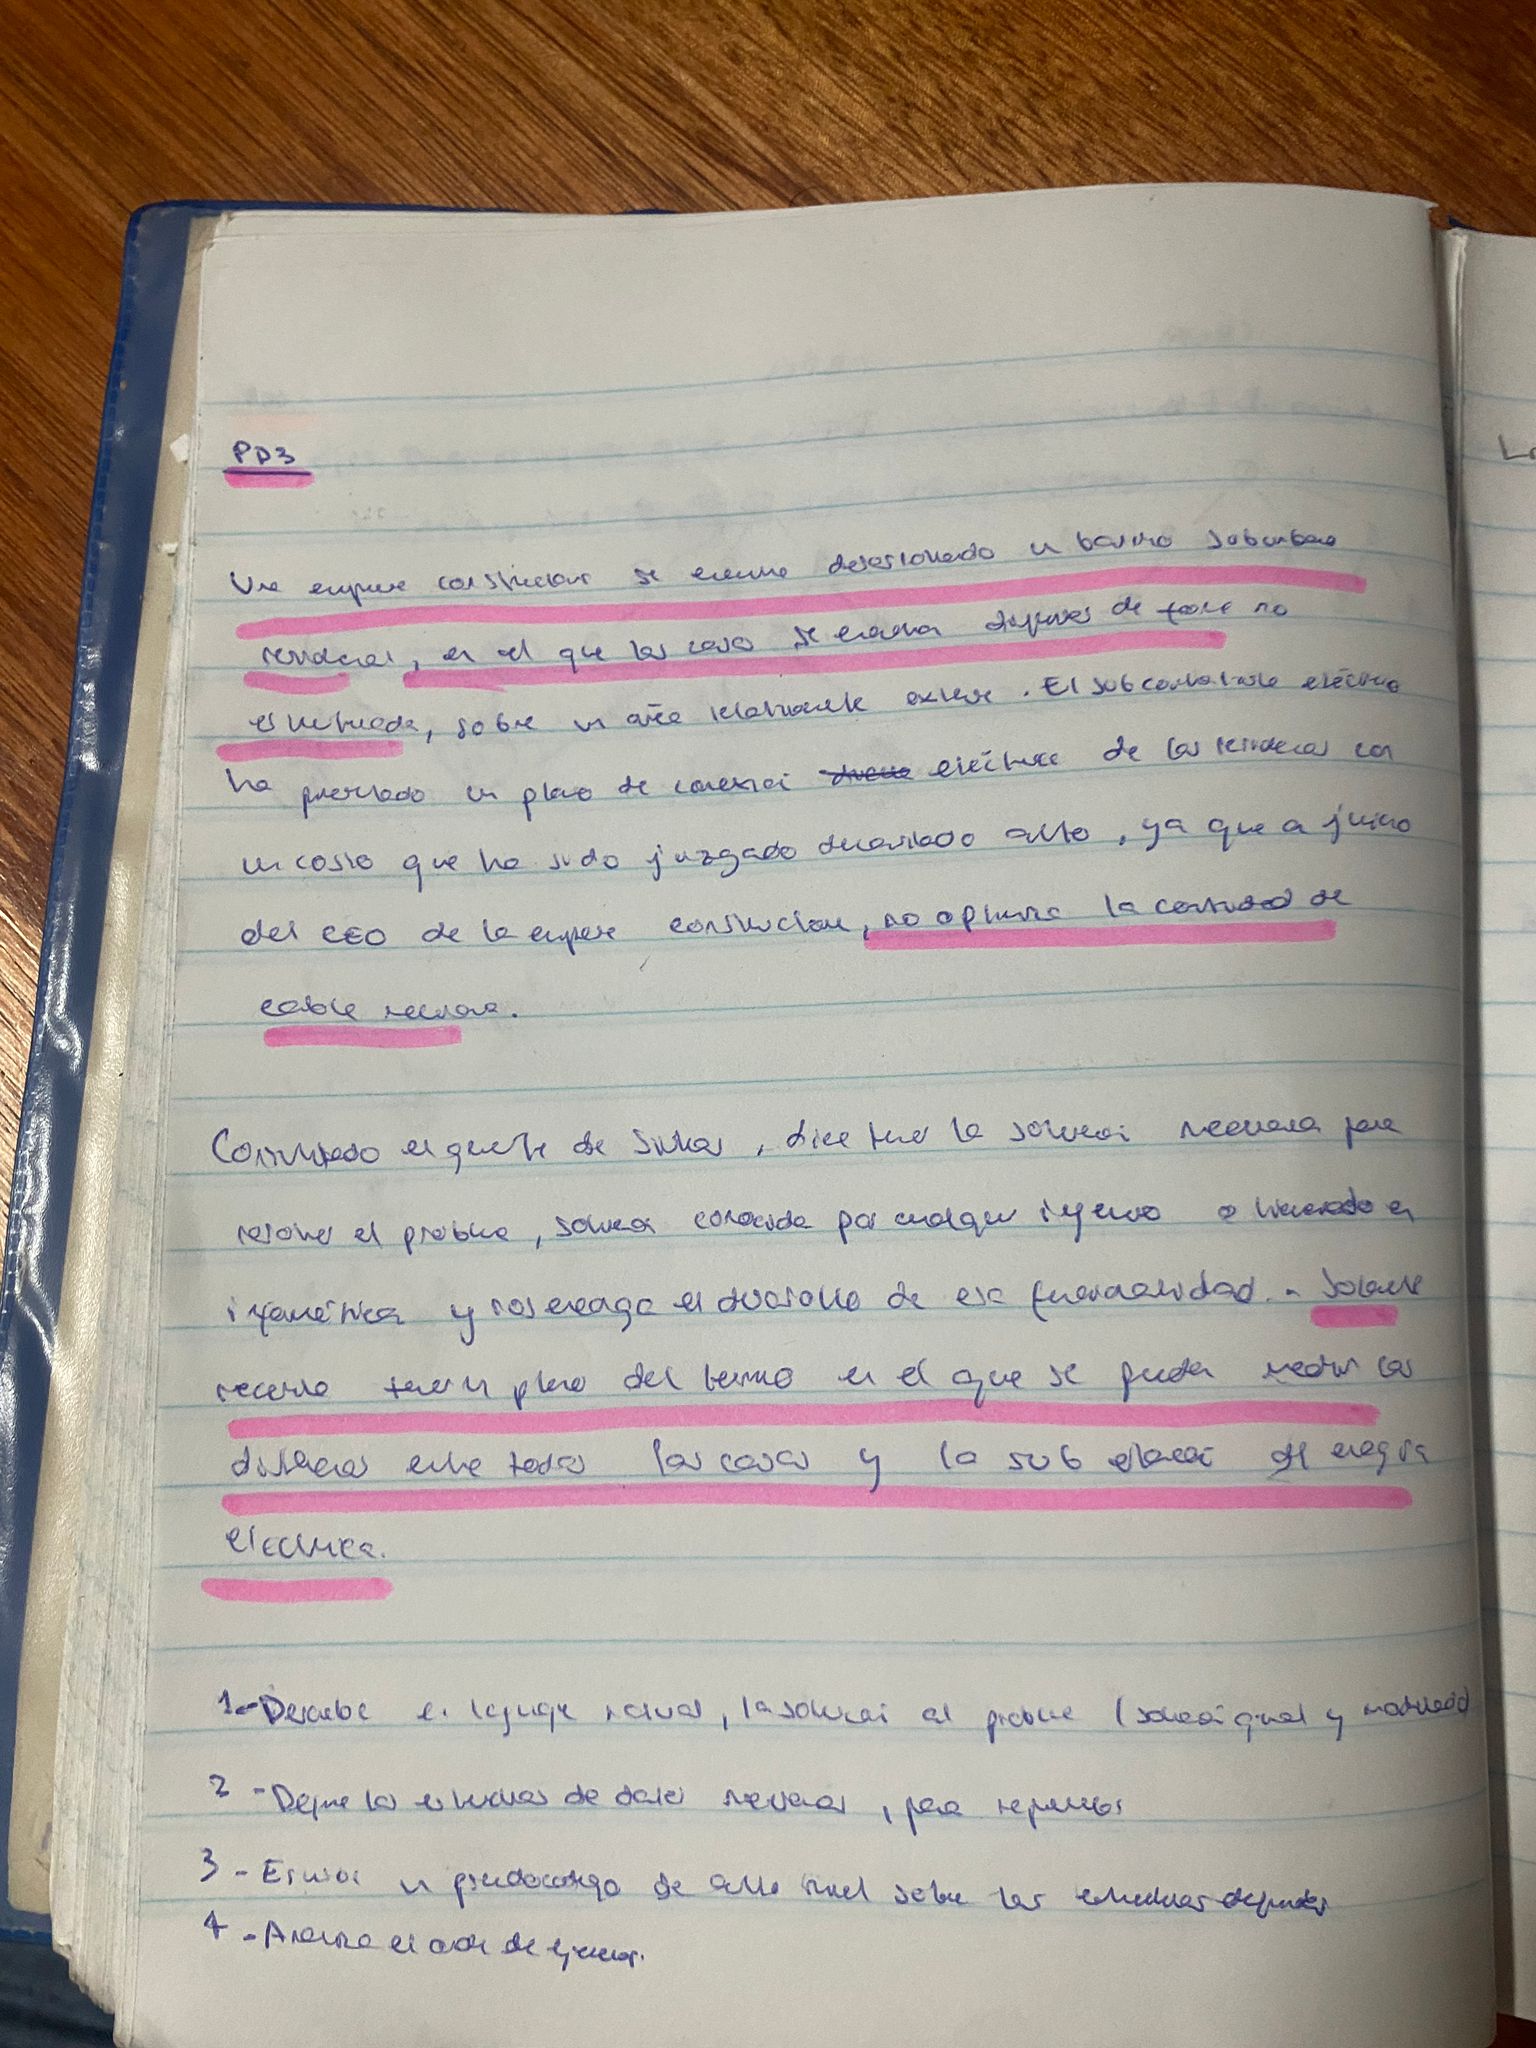 PD3
Una empresa constructora se encuentra desarrollando un barrio suburbano
residencial, en el que las casas se encuentran dispersas de forma no
estructurada, sobre un área relativamente extensa. El subcontratante eléctrico
ha presentado un plano de conexión eléctrica de las residencias con
un costo que ha sido juzgado demasiado alto, ya que a juicio
del CEO de la empresa constructora, no optimiza la cantidad de
cable necesaria.
Consultado el gerente de Sistemas, dice tener la solución necesaria para
resolver el problema, solución conocida por cualquier ingeniero o licenciado en
informática y nos encarga el desarrollo de esa funcionalidad. Solamente
necesita tener un plano del barrio en el que se puedan medir las
distancias entre todas las casas y la sub estación de energía
eléctrica.
1- Describe en lenguaje natural, la solución al problema (solución general y
2- Define las estructuras de datos necesarias, para
3- Escribir un pseudocódigo de alto nivel sobre las estructuras definidas
4- Analiza el orden de ejecución.